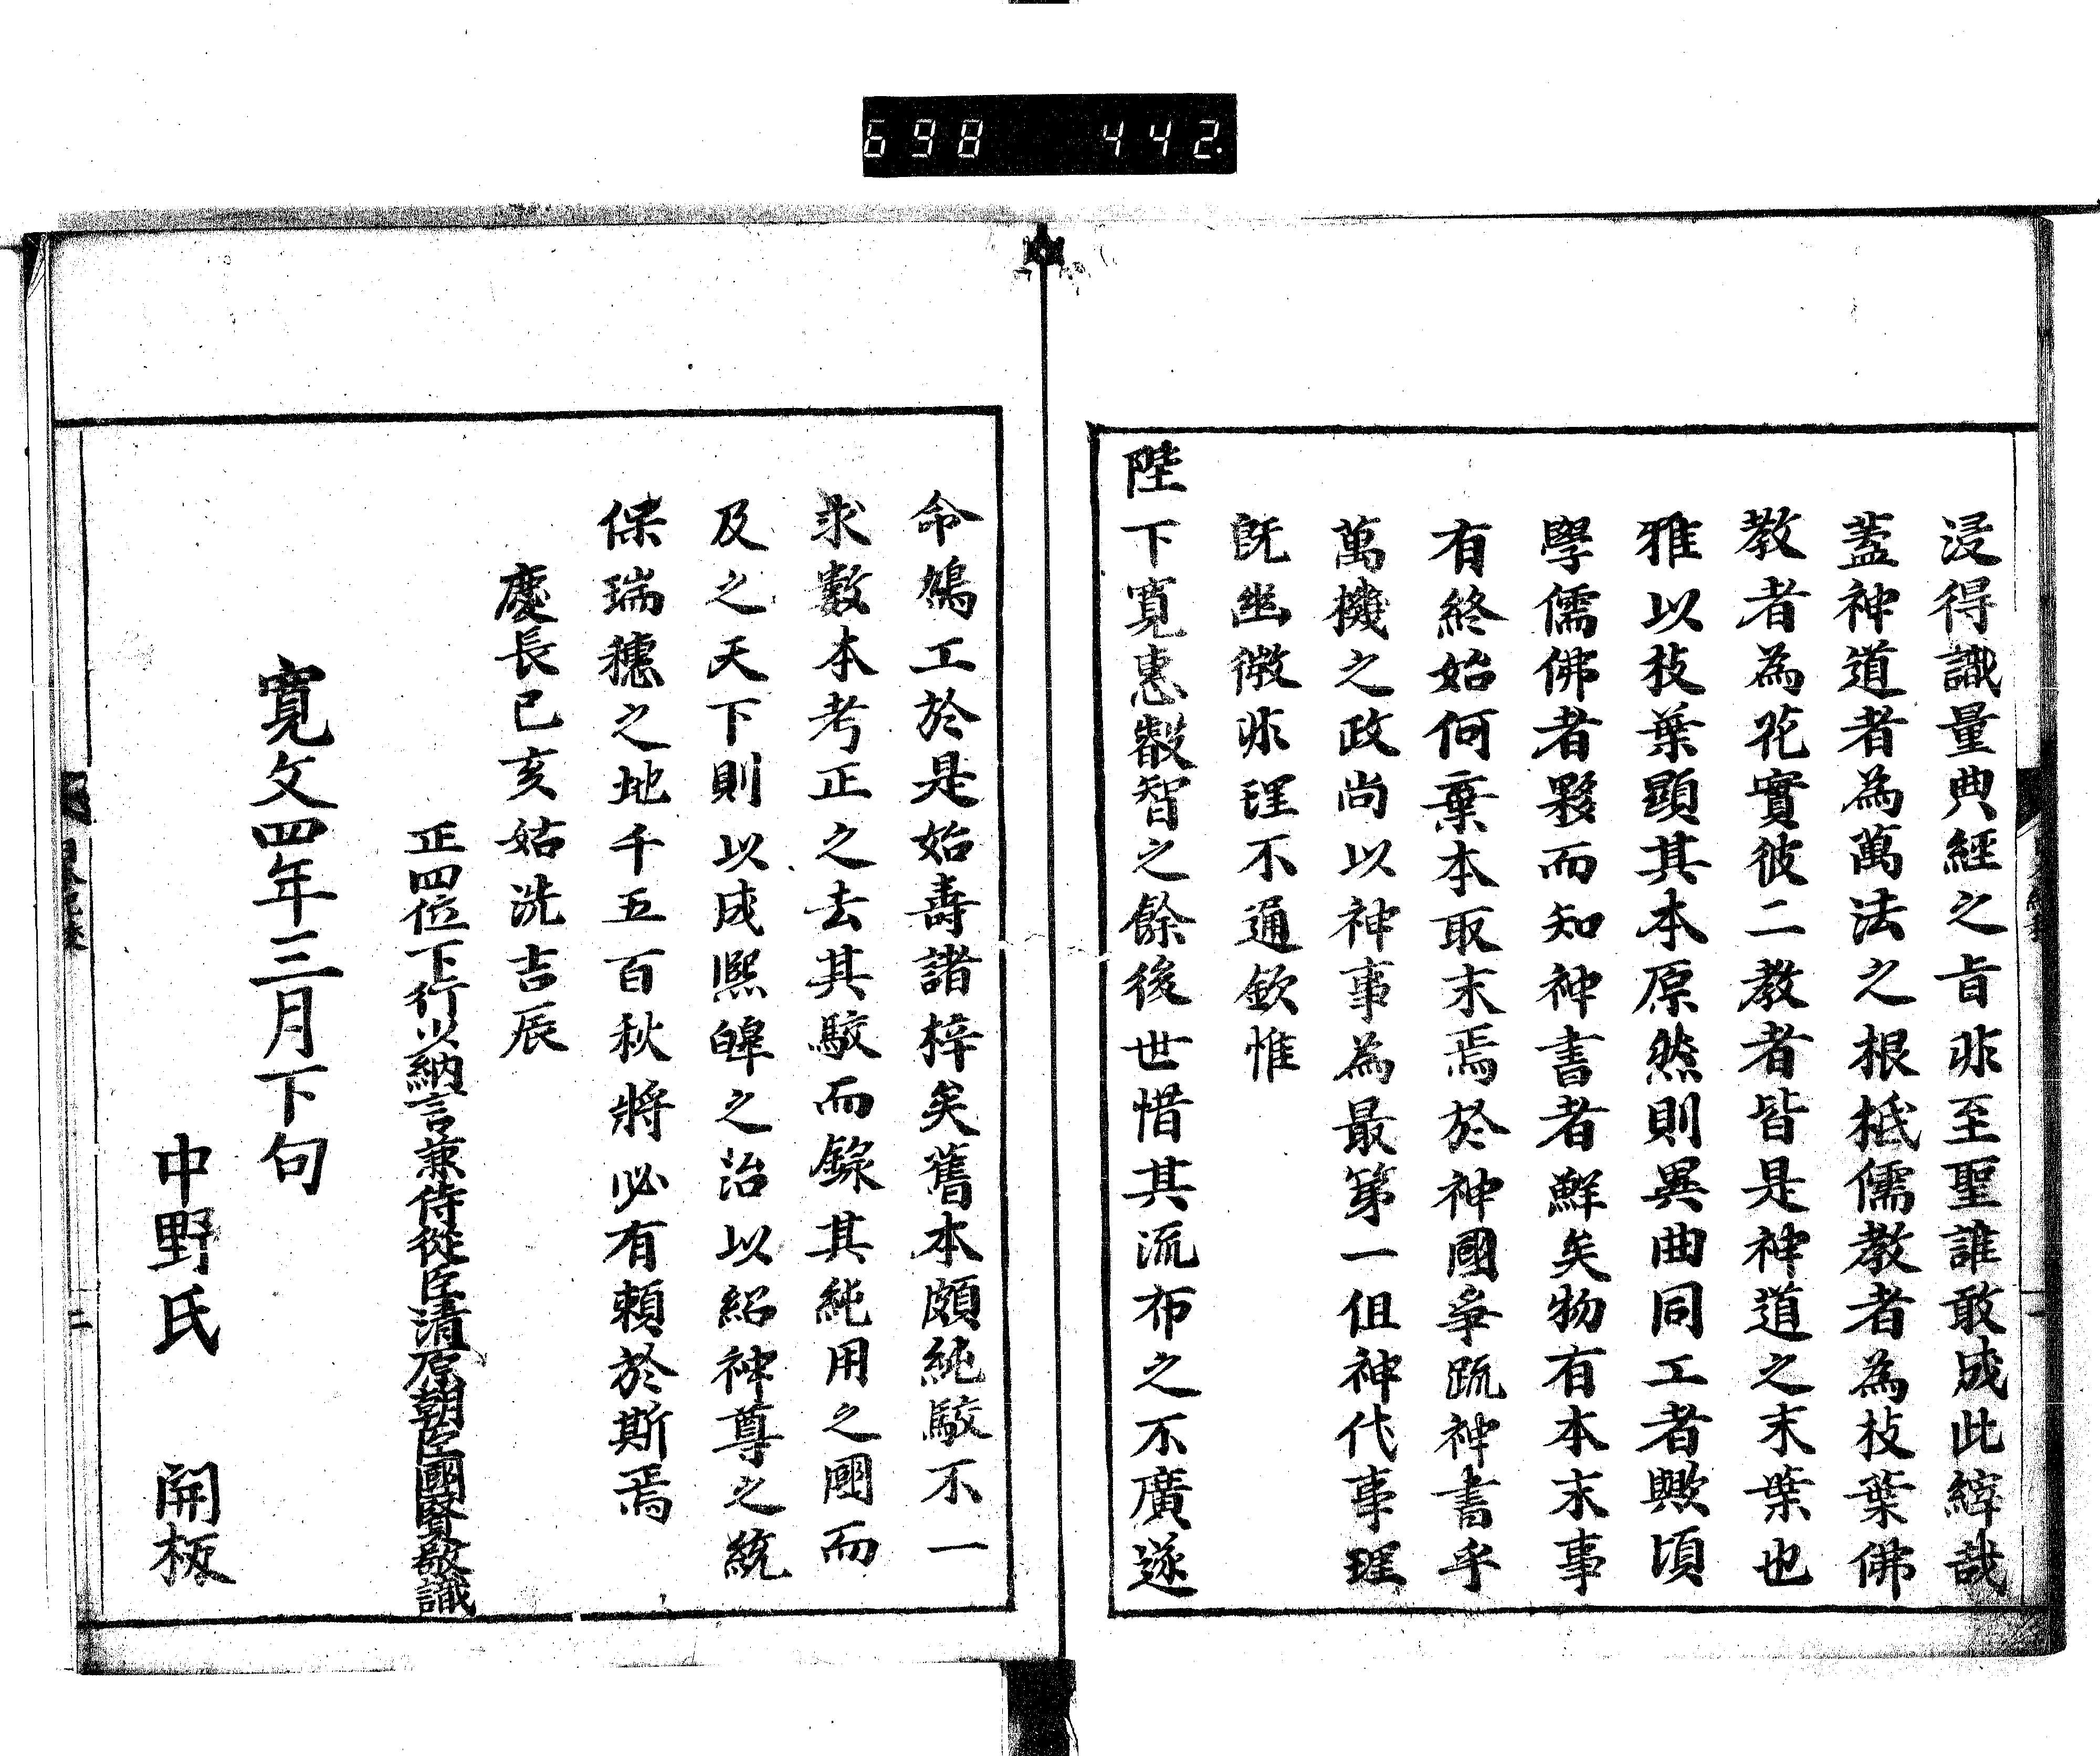 698 442.
浸得識量典經之旨非至聖誰敢成此縡哉
蓋神道者為萬法之根柢儒教者為枝葉佛
教者為花實彼二教者皆是神道之末葉也
雅以枝葉顕其本原然則異曲同工者歟頃
學儒佛者夥而知神書者鮮矣物有本末事
有終始何棄本取末焉於神國爭䟽神書乎
萬機之政尚以神事為最第一但神代事理
既幽微非理不通欽惟
陛下寛惠叡智之餘後世惜其流布之不廣遂
命鳩工於是始壽諸梓矣舊本頗純駁不一
求數本考正之去其駁而錄其純用之國而
及之天下則以成熈皥之治以紹神尊之統
保瑞穗之地千五百秋將必有頼於斯焉
慶長己亥姑洗吉辰
正四位下行少納言兼侍從臣清原朝臣國賢敬識
寛文四年三月下旬
中野氏 開板
二